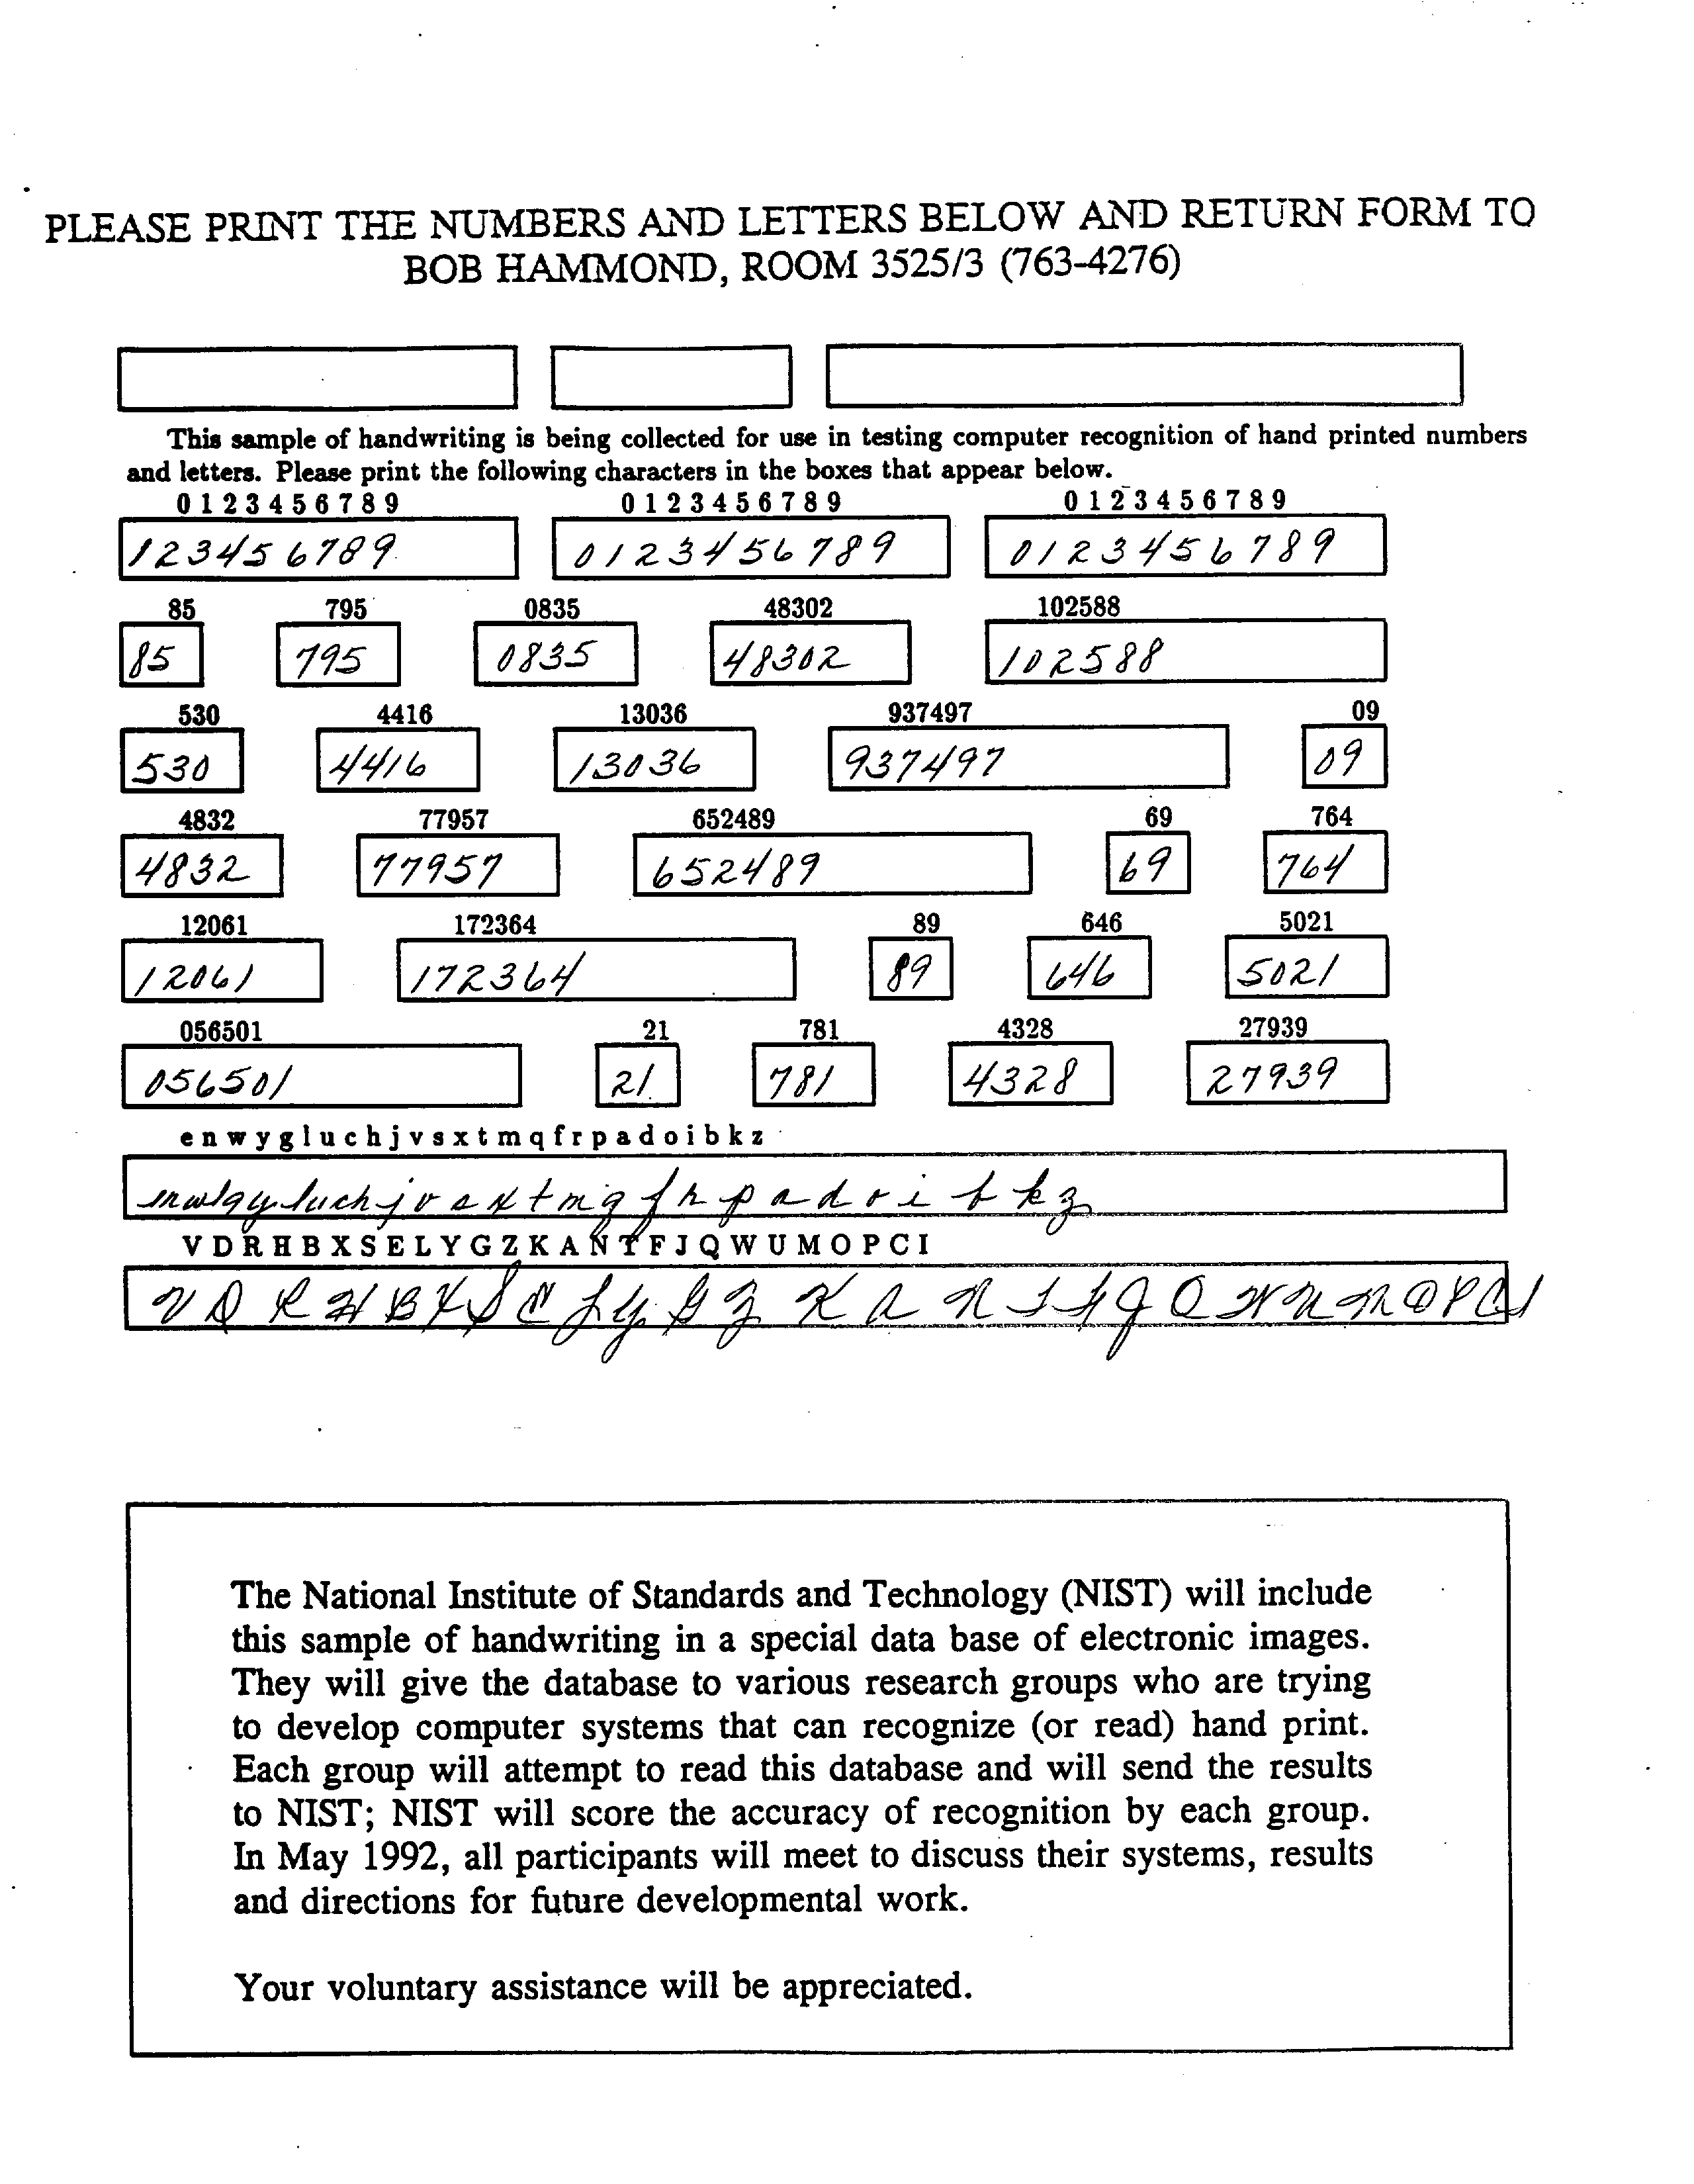 PLEASE PRINT THE NUMBERS AND LETTERS BELOW AND RETURN FORM TO
BOB HAMMOND, ROOM 3525/3 (763-4276)
This sample of handwriting is being collected for use in testing computer recognition of hand printed numbers
and letters. Please print the following characters in the boxes that appear below.
0 1 2 3 4 5 6 7 8 9 0 1 2 3 4 5 6 7 8 9 0 1 2 3 4 5 6 7 8 9
123456789 0123456789 0123456789
85 795 0835 48302 102588
85 795 0835 48302 102588
530 4416 13036 937497 09
530 4416 13036 937497 09
4832 77957 652489 69 764
4832 77957 652489 69 764
12061 172364 89 646 5021
12061 172364 89 646 5021
056501 21 781 4328 27939
056501 21 781 4328 27939
e n w y g l u c h j v s x t m q f r p a d o i b k z
l u c h j v s x t m q f r p a d o i b k z
V D R H B X S E L Y G Z K A N T F J Q W U M O P C I
V D R H B X S E L Y G Z K A N T F J Q W U M O P C I
The National Institute of Standards and Technology (NIST) will include
this sample of handwriting in a special data base of electronic images.
They will give the database to various research groups who are trying
to develop computer systems that can recognize (or read) hand print.
Each group will attempt to read this database and will send the results
to NIST; NIST will score the accuracy of recognition by each group.
In May 1992, all participants will meet to discuss their systems, results
and directions for future developmental work.
Your voluntary assistance will be appreciated.